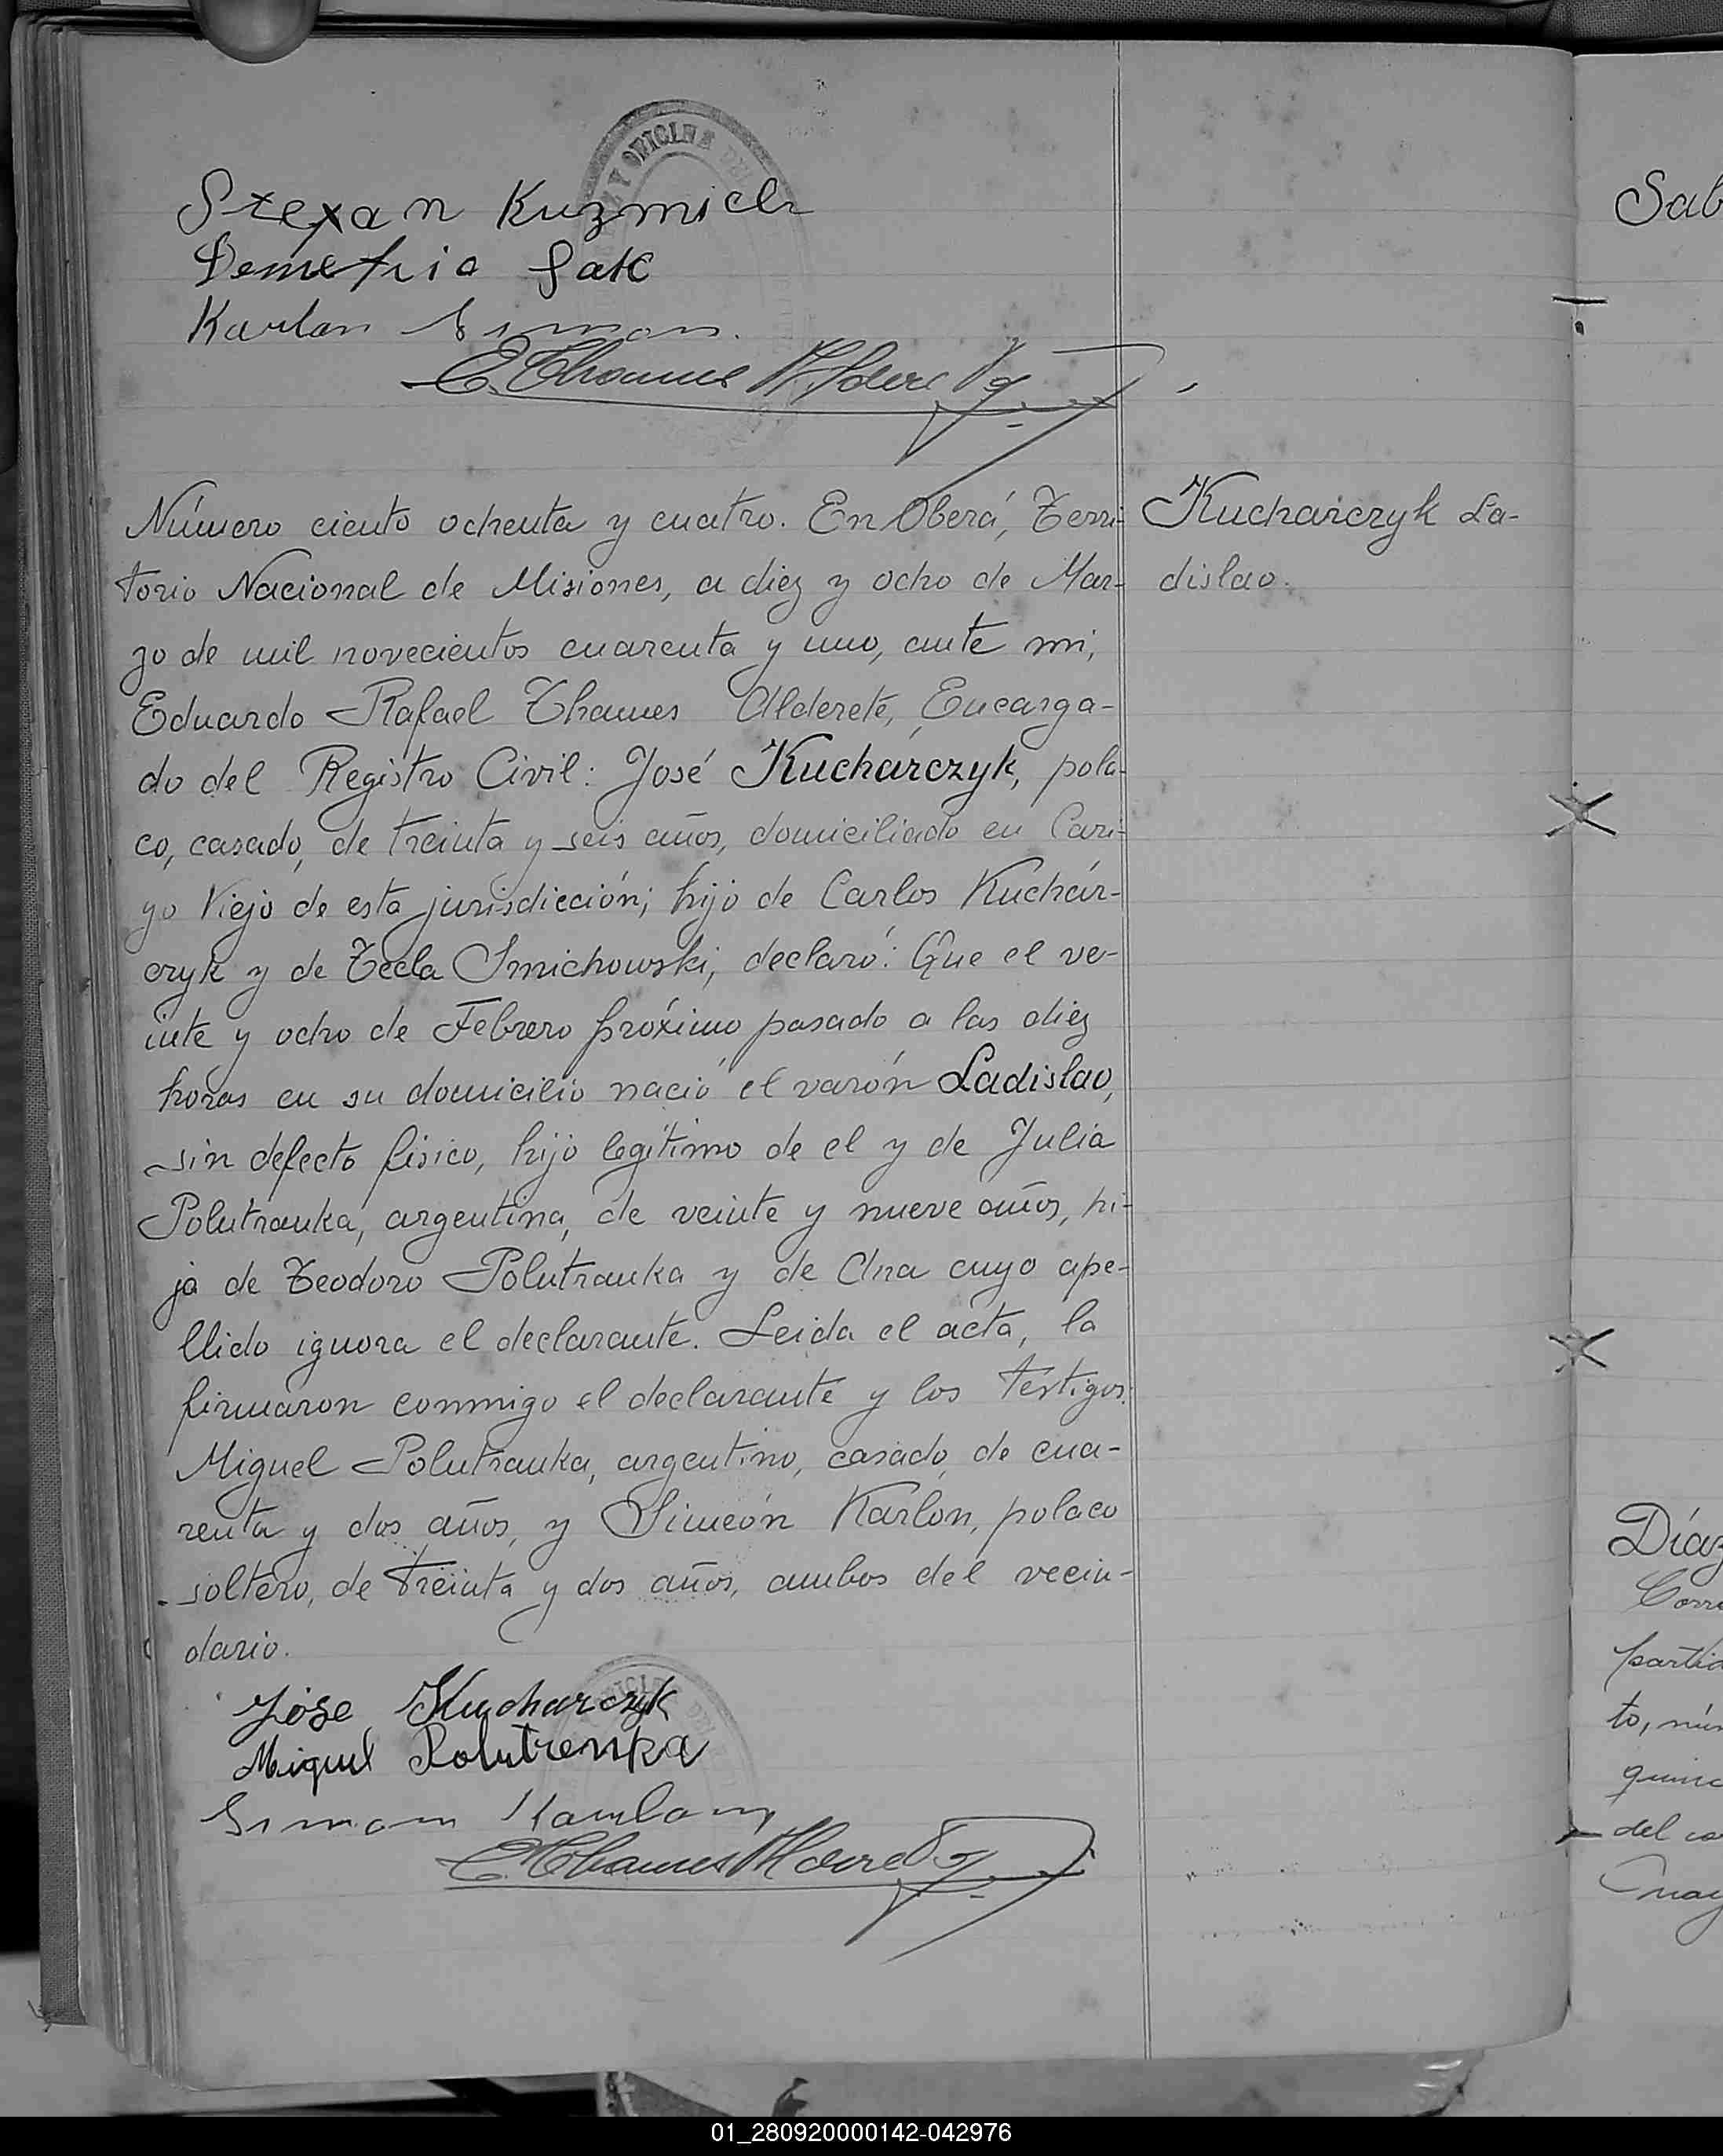 Y OFICINA DEL
Stepan Kuzmich
Demetrio Sak
Karlan Siman.
E. Thames Alderete
Número ciento ochenta y cuatro. En Oberá, Terri-
torio Nacional de Misiones, a diez y ocho de Mar-
zo de mil novecientos cuarenta y uno, ante mi,
Eduardo Rafael Thames Alderete, Encarga-
do del Registro Civil: José Kuchárczyk, pola-
co, casado, de treinta y seis años, domiciliado en Cari-
yo Viejo de esta jurisdicción; hijo de Carlos Kuchár-
czyk y de Tecla Smichowski, declaró: Que el ve-
inte y ocho de Febrero próximo pasado a las diez
horas en su domicilio nació el varón Ladislao,
sin defecto físico, hijo legítimo de el y de Julia
Polutranka, argentina, de veinte y nueve años, hi-
ja de Teodoro Polutranka y de Ana cuyo ape-
llido ignora el declarante. Leida el acta, la
firmaron conmigo el declarante y los testigos:
Miguel Polutranka, argentino, casado, de cua-
renta y dos años, y Simeón Karlon, polaco
soltero, de treinta y dos años, ambos del vecin-
dario.
Jóse Kucharczyk
Miguel Polutrenka
Siman Karlan
E. Thames Alderete
Kuchárczyk La-
dislao.
Sab
Díaz
Corre
partid
to, núm
quinc
del co
01_280920000142-042976